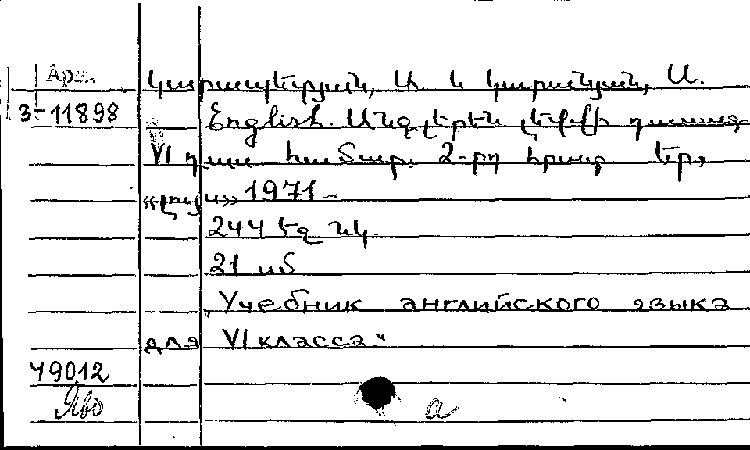 Арм.
Կարապետյան, Ա. և Կարանյան, Ա.
3-11898
English. Անգլերեն լեզվի դասագ
VI դաս համար. 2-րդ հրատ Եր.,
«Լույս» 1971
244 էջ նկ
21 սմ
Учебник английского языка
для VI класса"
79012
Яво
a